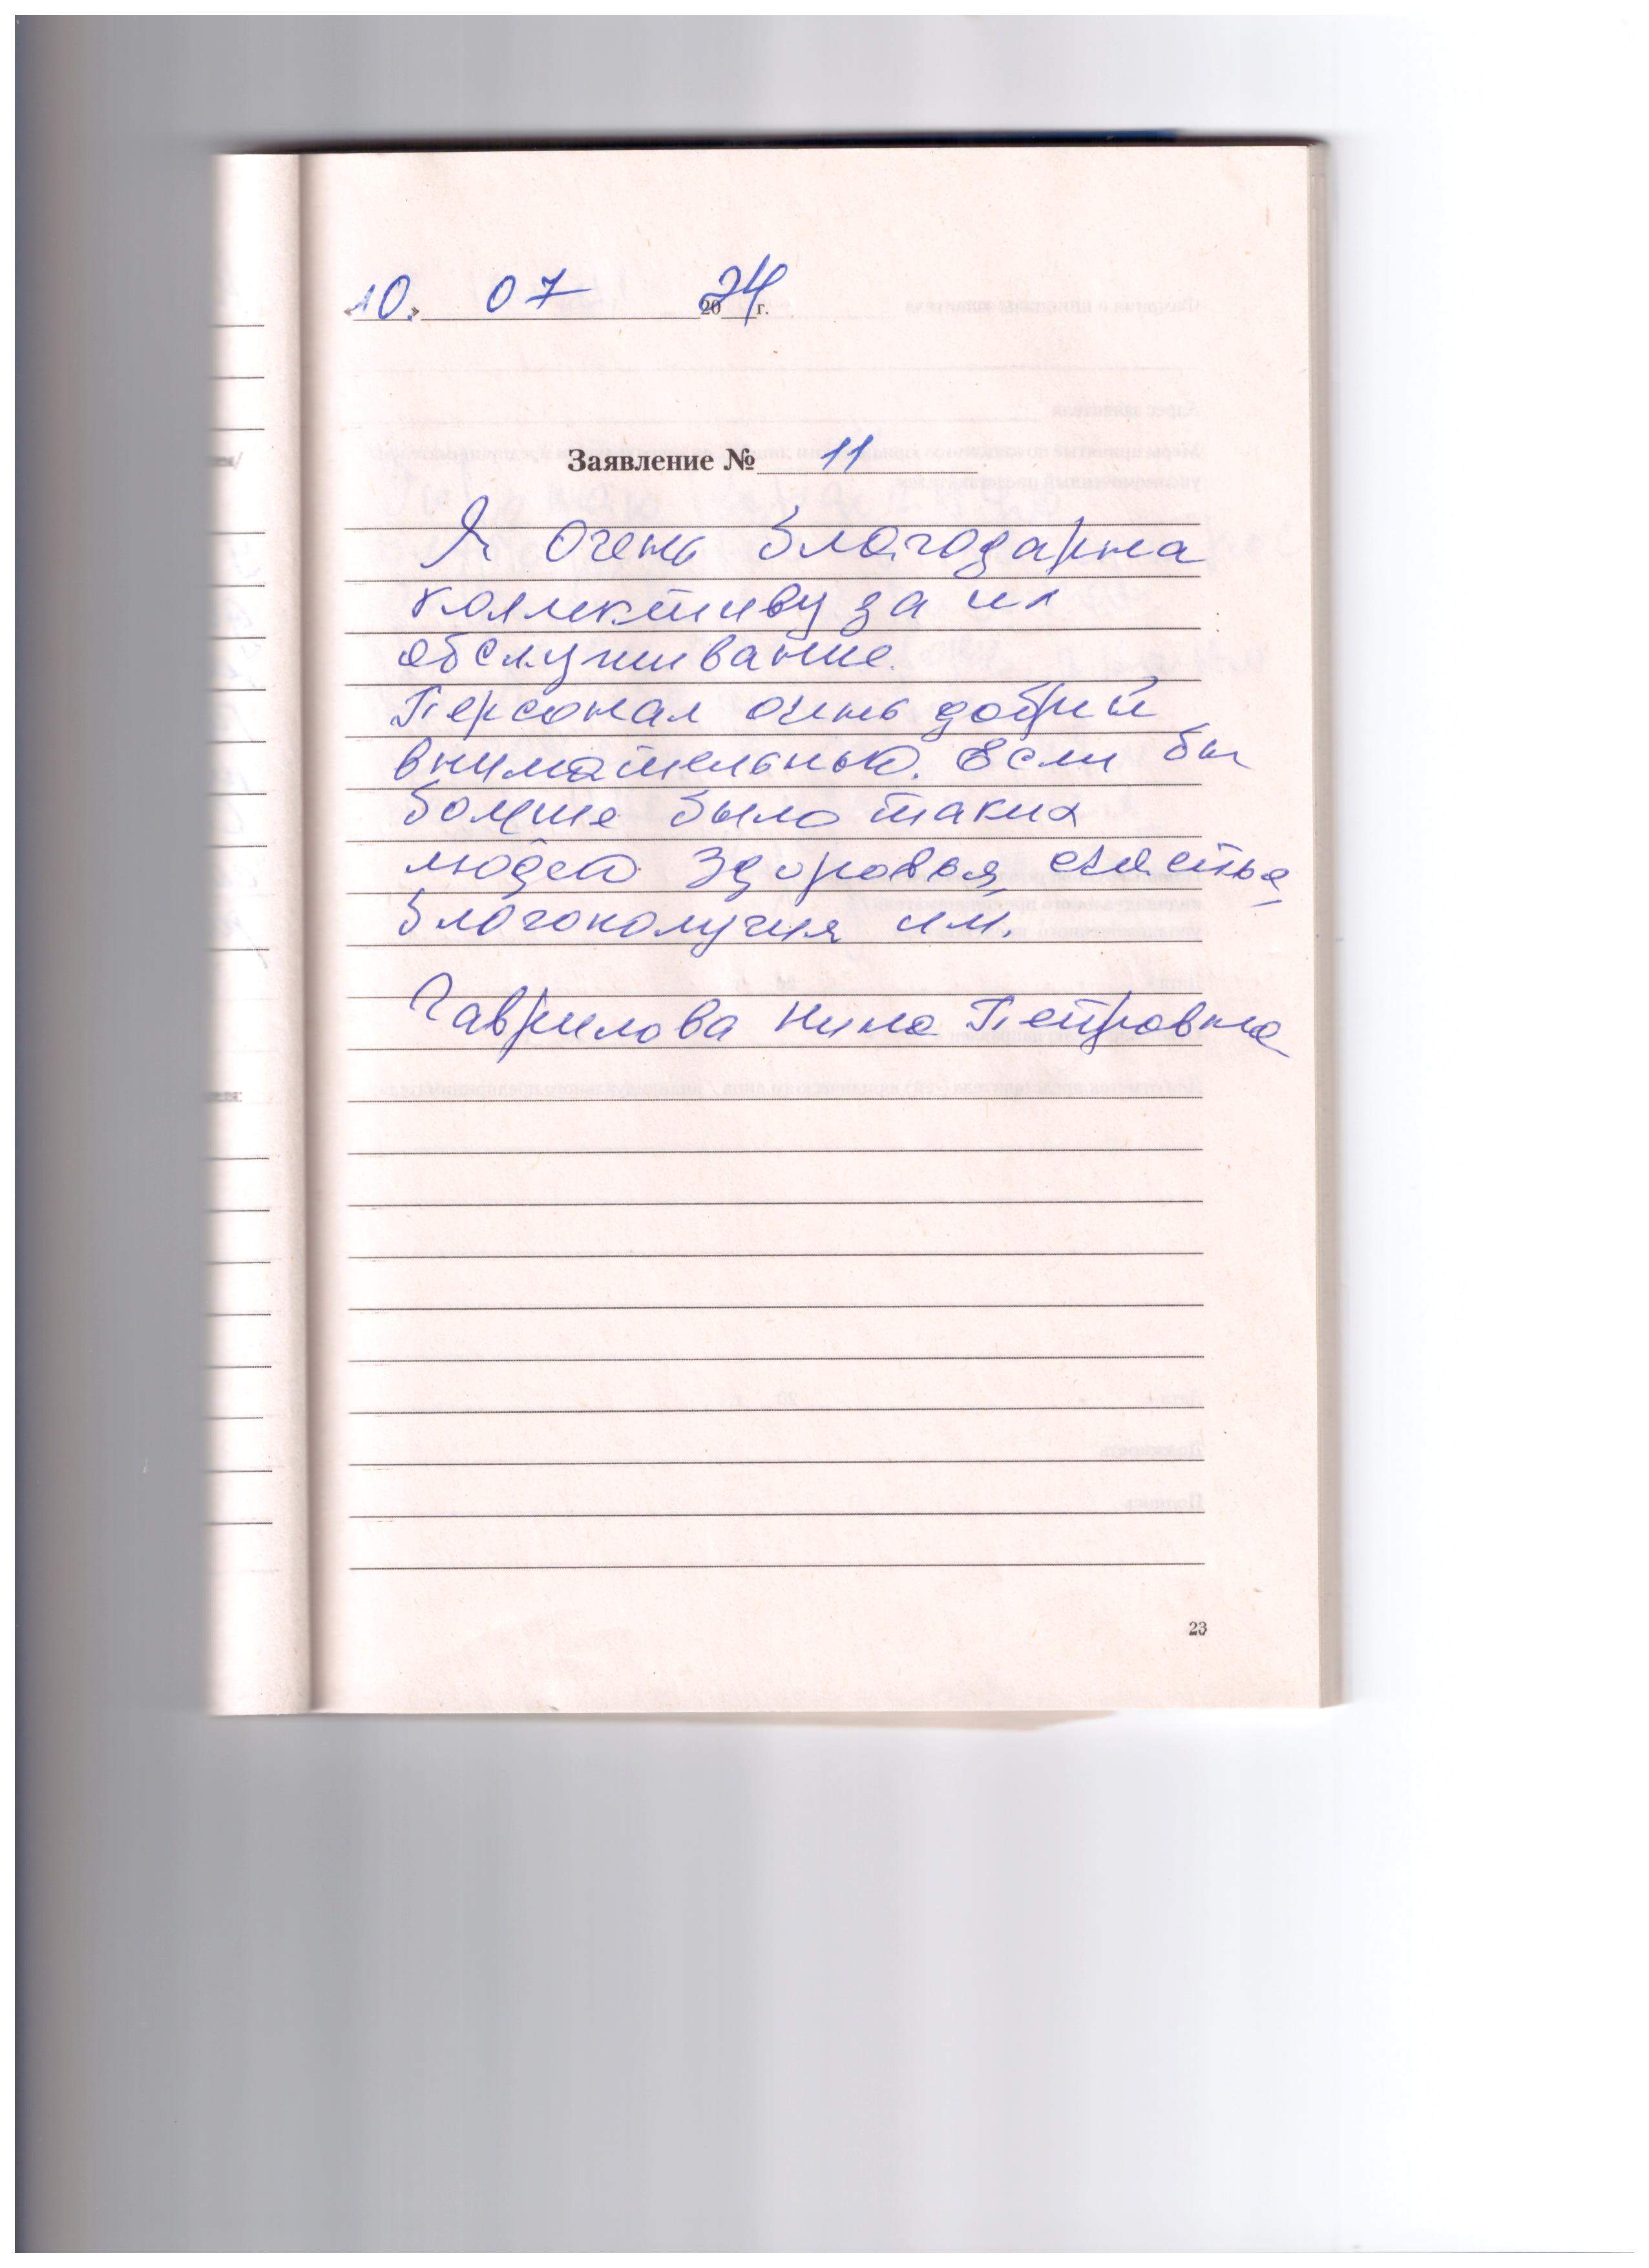 «10.» 07 2024 г.
Заявление № 11
Я очень благодарна
коллективу за их
обслуживание.
Персонал очень добрый
внимательный. Если бы
больше было таких
людей. Здоровья, счастья,
благополучия им.
Гаврилова Нина Петровна
23